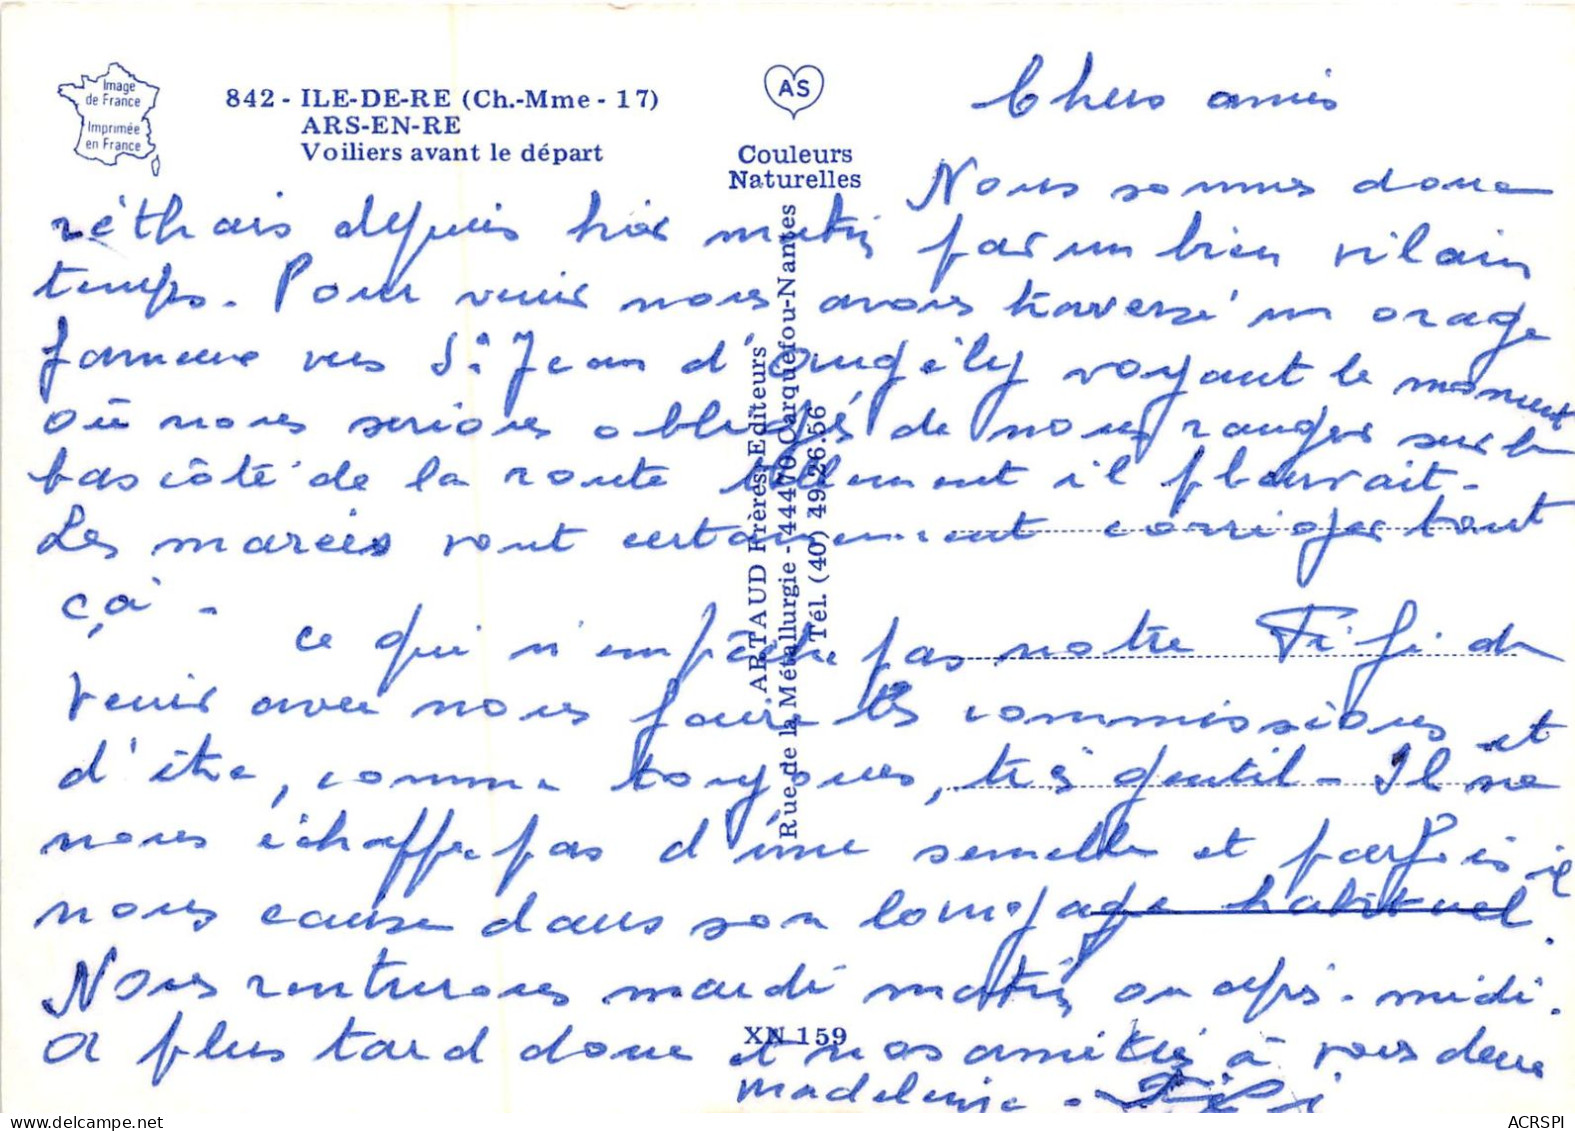 Image
de France
Imprimée
en France
842 - ILE-DE-RE (Ch.-Mme - 17)
ARS-EN-RE
Voiliers avant le départ
AS
Couleurs
Naturelles
ARTAUD Frères, Editeurs
Rue de la Métallurgie - 44470 Carquefou-Nantes
Tél. (40) 49.26.56
XN 159
Chers amis
Nous sommes donc
réthais depuis hier matin par un bien vilain
temps. Pour venir nous avons traversé un orage
fameux vers St Jean d'Angély voyant le moment
où nous serions obligés de nous ranger sur le
bas côté de la route tellement il pleuvait -
Les marées vont certainement corriger tout
çà -
ce qui n'empêche pas notre Fifi de
venir avec nous faire les commissions et
d'être, comme toujours, très gentil - Il ne
nous échappe pas d'une semelle et parfois il
nous cause dans son langage habituel.
Nous rentrerons mardi matin ou après-midi.
A plus tard donc et nos amitiés à vous deux
Madeleine - Fifi
ACRSPI